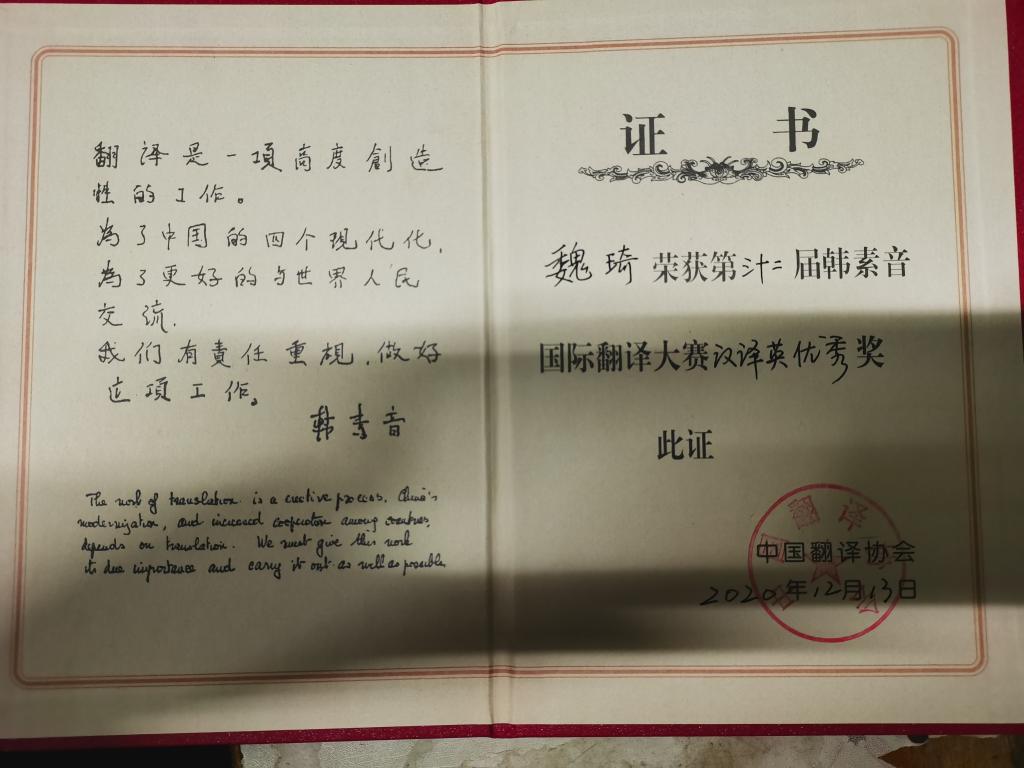 翻译是一項高度創造
性的工作。
為了中国的四个现代化,
為了更好的与世界人民
交流.
我们有責任重視.做好
这項工作。
韩素音
The work of translation is a creative process. China's
modernization, and increased cooperation among countries,
depends on translation. We must give this work
its due importance and carry it out as well as possible.
证书
魏琦荣获第卅二届韩素音
国际翻译大赛汉译英优秀奖
此证
中国翻译协会
中国翻译协会
2020年12月13日